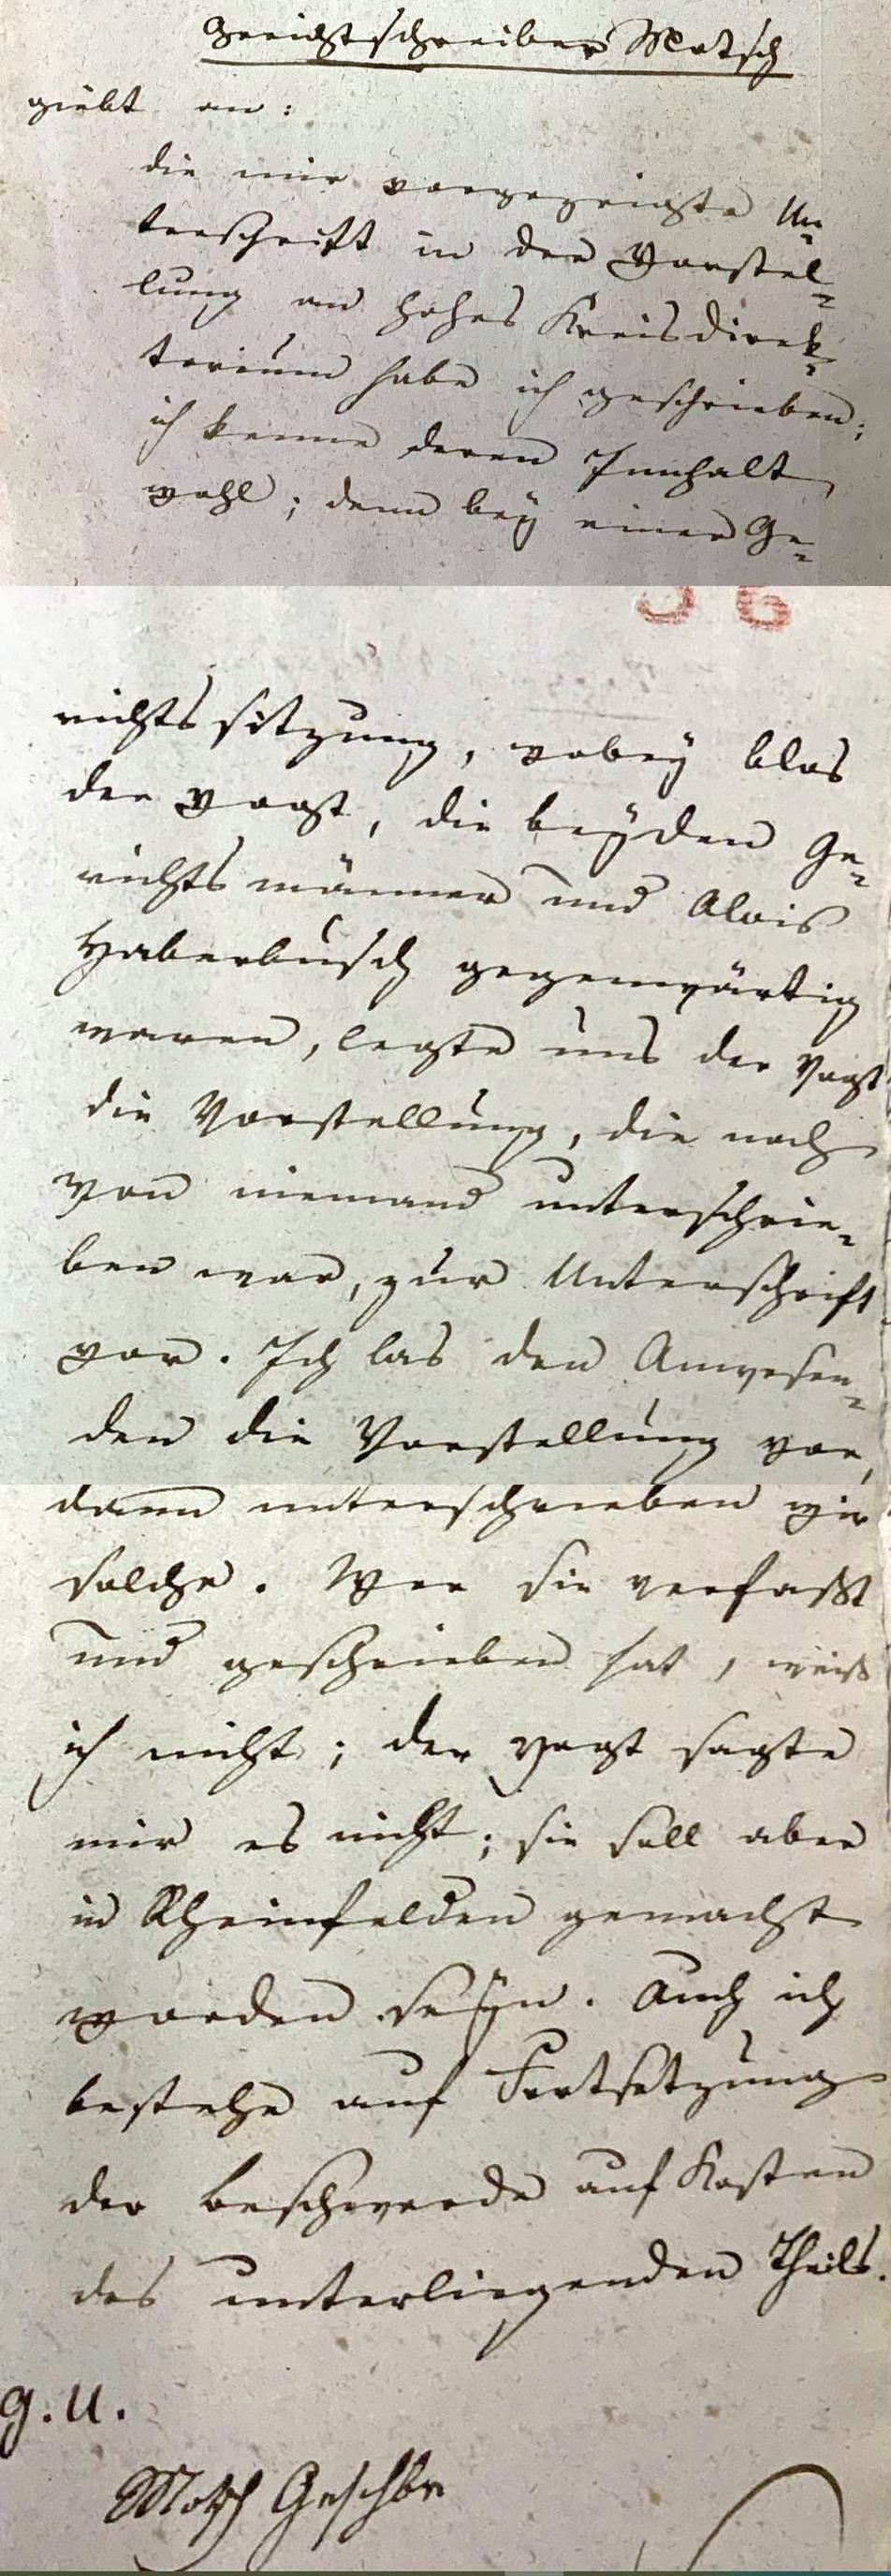 Gerichtschreiber Motsch
giebt an:
die mir vorgezeigte Un=
terschrift in der Vorstel=
lung an hohes Kreisdirek=
torium habe ich geschrieben;
ich kenne deren Innhalt
wohl; denn bey einer Ge=
richtssitzung, wobey blos
der Vogt, die beyden Ge=
richtsmänner und Alois
Haberbusch gegenwärtig
waren, legte uns der Vogt
die Vorstellung, die noch
von niemand unterschrie=
ben war, zur Unterschrift
vor. Ich las den Anwesen=
den die Vorstellung vor,
dann unterschrieben wir
solche. Wer sie verfaßt
und geschrieben hat, weis
ich nicht; der Vogt sagte
mir es nicht; sie soll aber
in Rheinfelden gemacht
worden seÿn. Auch ich
bestehe auf Fortsetzung
der Beschwerde auf Kosten
des unterliegenden Theils.
g. U.
Motsch Geschbr